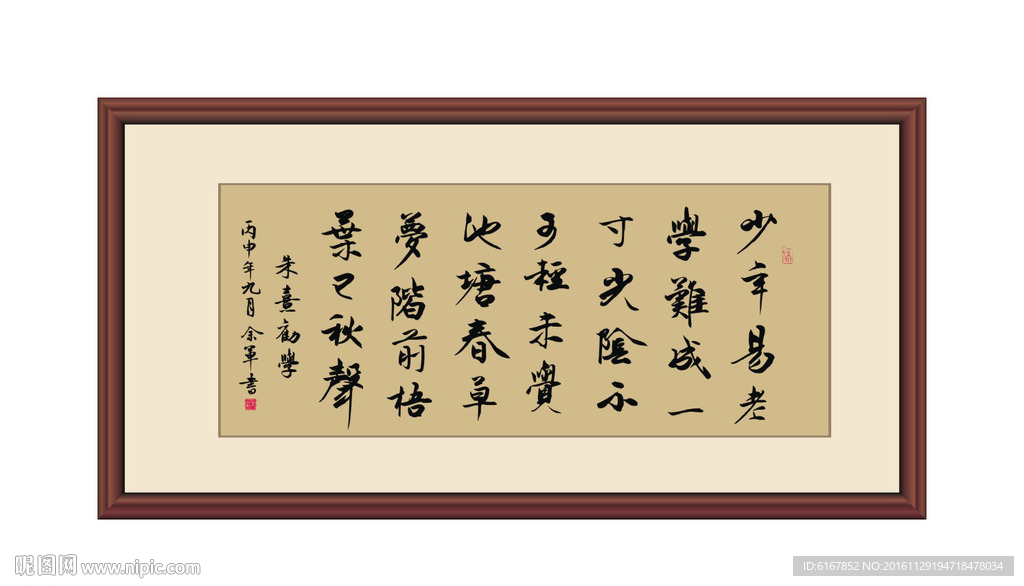 少年易老
學難成一
寸光陰不
可輕未覺
池塘春草
夢階前梧
葉已秋聲
朱熹勸學
丙申年九月余軍书
昵图网 www.nipic.com
ID:6167852 NO:20161129194718478034